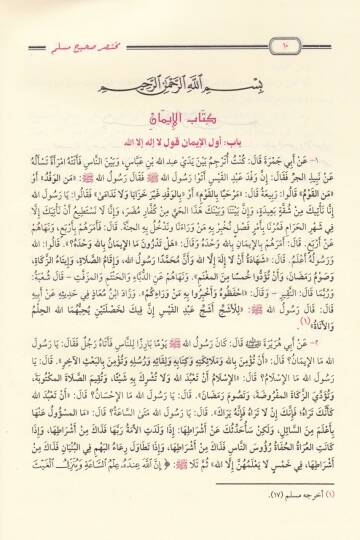 مختصر صحيح مسلم
١٠
بِسْمِ اللَّهِ الرَّحْمَٰنِ الرَّحِيمِ
كِتَابُ الإِيمَانِ
باب: أول الإيمان قول لا إله إلا الله
١- عَنْ أَبِي جَمْرَةَ قَالَ: كُنْتُ أُتَرْجِمُ بَيْنَ يَدَيْ عبد الله بْنِ عَبَّاسٍ، وَبَيْنَ النَّاسِ فَأَتَتْهُ امْرَأَةٌ تَسْأَلُهُ
عَنْ نَبِيذِ الجَرِّ فَقَالَ: إِنَّ وَفْدَ عَبْدِ القَيْسِ أَتَوْا رَسُولَ الله ﷺ فَقَالَ رَسُولُ الله ﷺ: «مَنِ الْوَفْدُ؟ أَوْ
«مَنِ القَوْمُ؟» قَالُوا: رَبِيعَةُ قَالَ: «مَرْحَبًا بِالقَوْمِ» أَوْ: «بِالوَفْدِ غَيْرَ خَزَايَا وَلا نَدَامَى» قَالَ: فَقَالُوا: يَا رَسُولَ الله
إِنَّا نَأْتِيكَ مِنْ شُقَّةٍ بَعِيدَةٍ، وَإِنَّ بَيْنَنَا وَبَيْنَكَ هَذَا الحَيَّ مِنْ كُفَّارِ مُضَرَ، وَإِنَّا لا نَسْتَطِيعُ أَنْ نَأْتِيَكَ إِلَّا
فِي شَهْرِ الحَرَامِ فَمُرْنَا بِأَمْرٍ فَصْلٍ نُخْبِرْ بِهِ مَنْ وَرَاءَنَا وَنَدْخُلُ بِهِ الجَنَّةَ. قَالَ: فَأَمَرَهُمْ بِأَرْبَعٍ، وَنَهَاهُمْ
عَنْ أَرْبَعٍ. قَالَ: أَمَرَهُمْ بِالإِيمَانِ بِالله وَحْدَهُ وَقَالَ: «هَلْ تَدْرُونَ مَا الإِيمَانُ بِالله وَحْدَهُ؟». قَالُوا: الله
وَرَسُولُهُ أَعْلَمُ. قَالَ: «شَهَادَةُ أَنْ لا إِلَهَ إِلَّا الله وَأَنَّ مُحَمَّدًا رَسُولُ الله، وَإِقَامُ الصَّلاةِ، وَإِيتَاءُ الزَّكَاةِ،
وَصَوْمُ رَمَضَانَ، وَأَنْ تُؤَدُّوا خُمُسًا مِنَ المَغْنَمِ». وَنَهَاهُمْ عَنِ الدُّبَّاءِ وَالحَنْتَمِ وَالمُزَفَّتِ - قَالَ شُعْبَةُ:
وَرُبَّمَا قَالَ: النَّقِيرِ - وَقَالَ: «احْفَظُوهُ وَأَخْبِرُوا بِهِ مَنْ وَرَاءَكُمْ». وَزَادَ ابْنُ مُعَاذٍ فِي حَدِيثِهِ عَنْ أَبِيهِ
قَالَ: قَالَ رَسُولُ الله ﷺ: لِلأَشَجِّ أَشَجِّ عَبْدِ القَيْسِ إِنَّ فِيكَ لَخَصْلَتَيْنِ يُحِبُّهُمَا الله الحِلْمُ
وَالأَنَاةُ»(١)
٢- عَنْ أَبِي هُرَيْرَةَ قَالَ: كَانَ رَسُولُ الله ﷺ يَوْمًا بَارِزًا لِلنَّاسِ فَأَتَاهُ رَجُلٌ فَقَالَ: يَا رَسُولَ
الله مَا الإِيمَانُ؟ قَالَ: «أَنْ تُؤْمِنَ بِالله وَمَلائِكَتِهِ وَكِتَابِهِ وَلِقَائِهِ وَرُسُلِهِ وَتُؤْمِنَ بِالبَعْثِ الآخِرِ». قَالَ: يَا
رَسُولَ الله مَا الإِسْلامُ؟ قَالَ: «الإِسْلامُ أَنْ تَعْبُدَ الله وَلا تُشْرِكَ بِهِ شَيْئًا، وَتُقِيمَ الصَّلاةَ المَكْتُوبَةَ،
وَتُؤَدِّيَ الزَّكَاةَ المَفْرُوضَةَ، وَتَصُومَ رَمَضَانَ». قَالَ: يَا رَسُولَ الله مَا الإِحْسَانُ؟ قَالَ: «أَنْ تَعْبُدَ الله
كَأَنَّكَ تَرَاهُ؛ فَإِنَّكَ إِنْ لا تَرَاهُ فَإِنَّهُ يَرَاكَ». قَالَ: يَا رَسُولَ الله مَتَى السَّاعَةُ؟ قَالَ: «مَا المَسْؤُولُ عَنْهَا
بِأَعْلَمَ مِنَ السَّائِلِ، وَلَكِنْ سَأُحَدِّثُكَ عَنْ أَشْرَاطِهَا: إِذَا وَلَدَتِ الأَمَةُ رَبَّهَا فَذَاكَ مِنْ أَشْرَاطِهَا، وَإِذَا
كَانَتِ العُرَاةُ الحُفَاةُ رُؤُوسَ النَّاسِ فَذَاكَ مِنْ أَشْرَاطِهَا، وَإِذَا تَطَاوَلَ رِعَاءُ البَهْمِ فِي البُنْيَانِ فَذَاكَ مِنْ
أَشْرَاطِهَا، فِي خَمْسٍ لا يَعْلَمُهُنَّ إِلَّا الله» ثُمَّ تَلا ﷺ: ﴿إِنَّ اللَّهَ عِندَهُ عِلْمُ السَّاعَةِ وَيُنَزِّلُ الْغَيْثَ
(١) أخرجه مسلم (١٧).